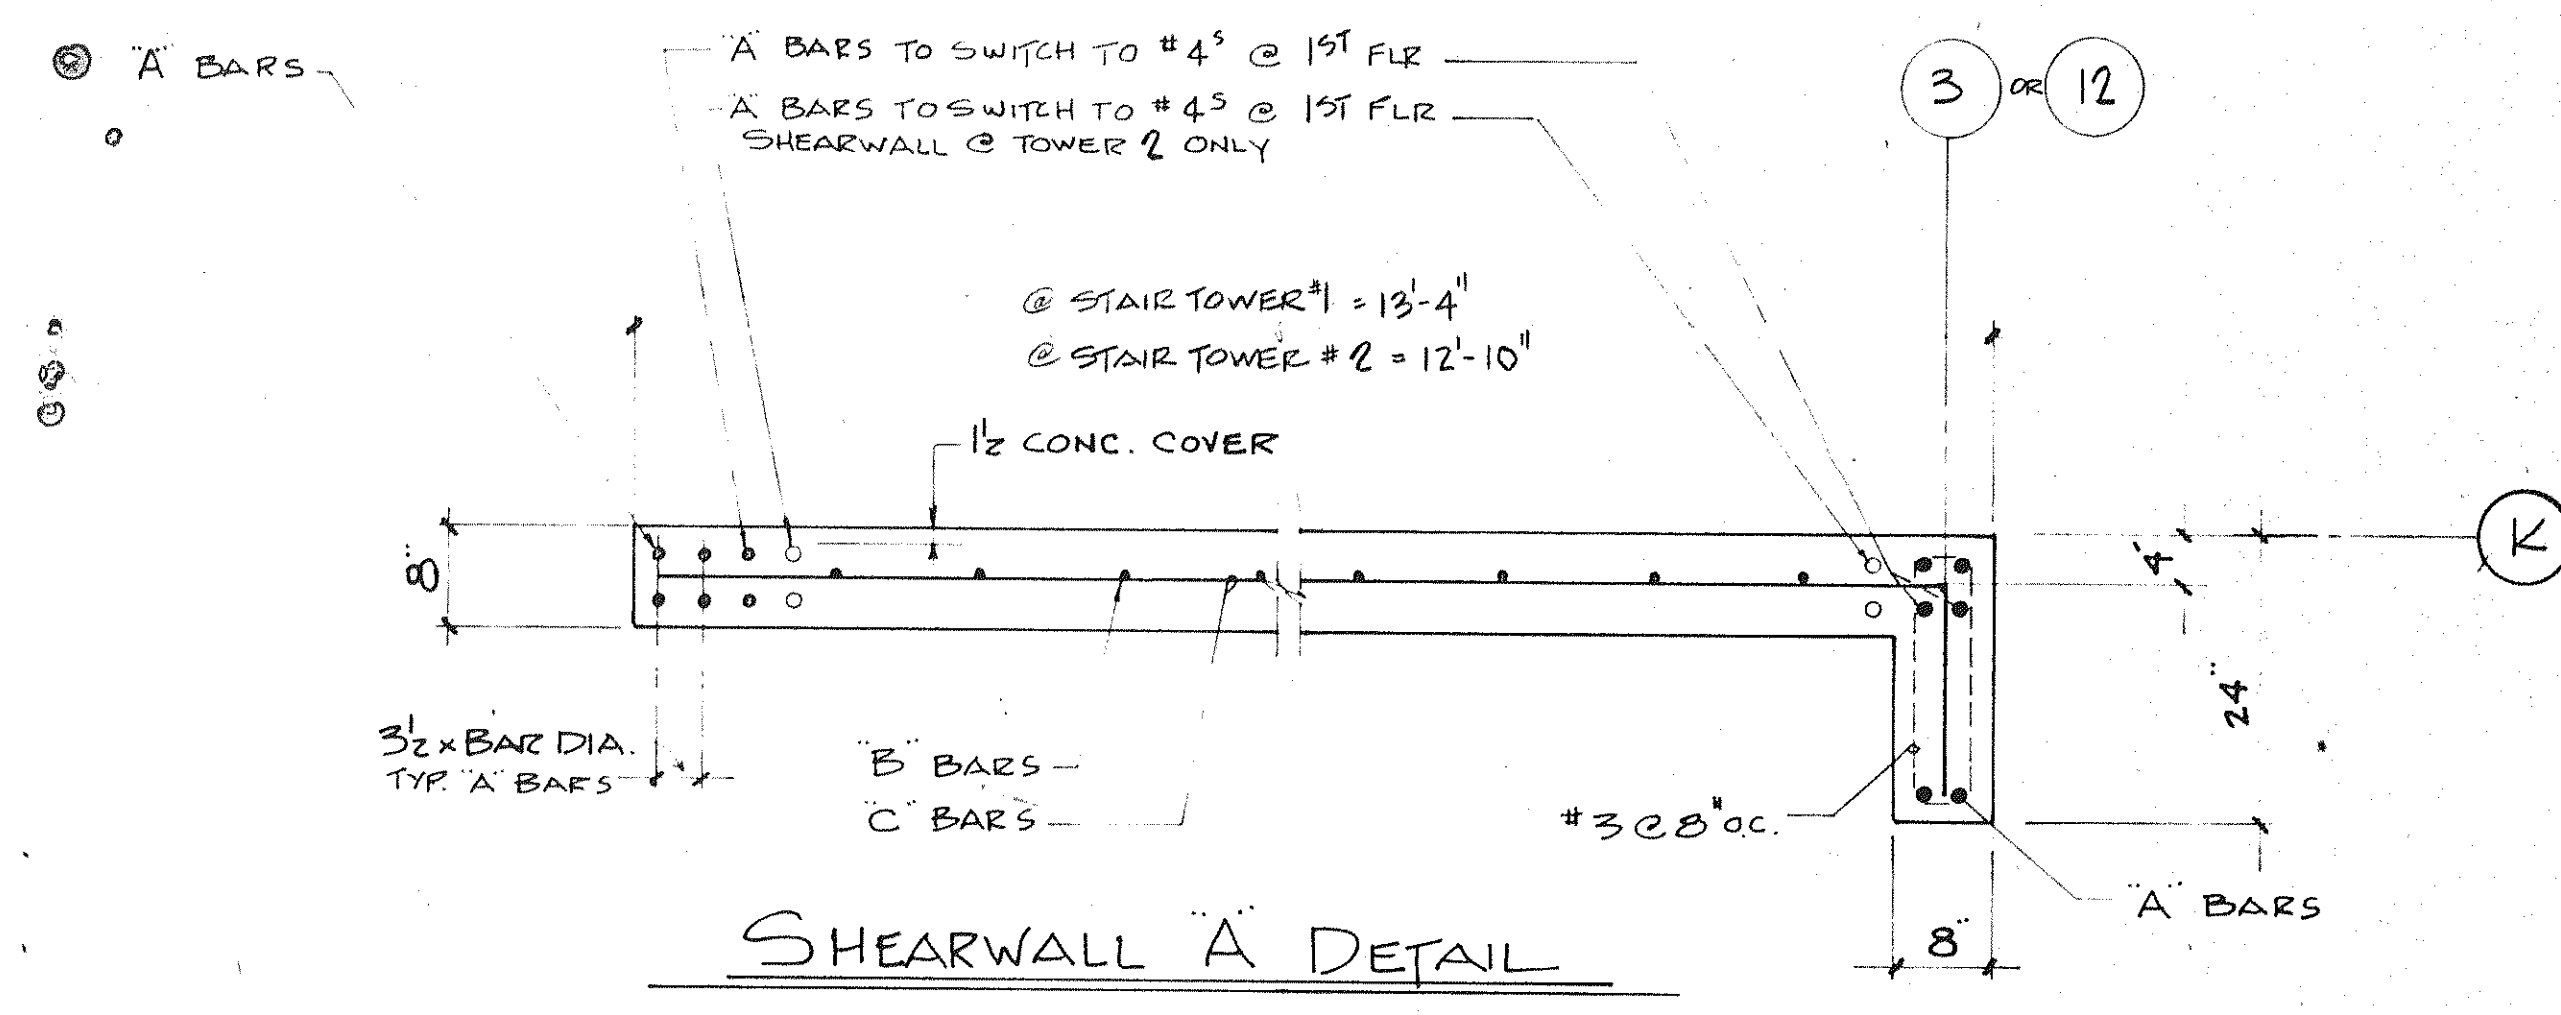 "A" BARS
"A" BARS TO SWITCH TO #4S @ 1ST FLR
"A" BARS TO SWITCH TO #4S @ 1ST FLR
SHEARWALL @ TOWER 2 ONLY
3 OR 12
@ STAIR TOWER #1 = 13'-4"
@ STAIR TOWER # 2 = 12'-10"
1½ CONC. COVER
8"
K
4"
24"
3½ x BAR DIA.
TYP. "A" BARS
"B" BARS
"C" BARS
#3 @ 8" O.C.
"A" BARS
8"
SHEARWALL "A" DETAIL